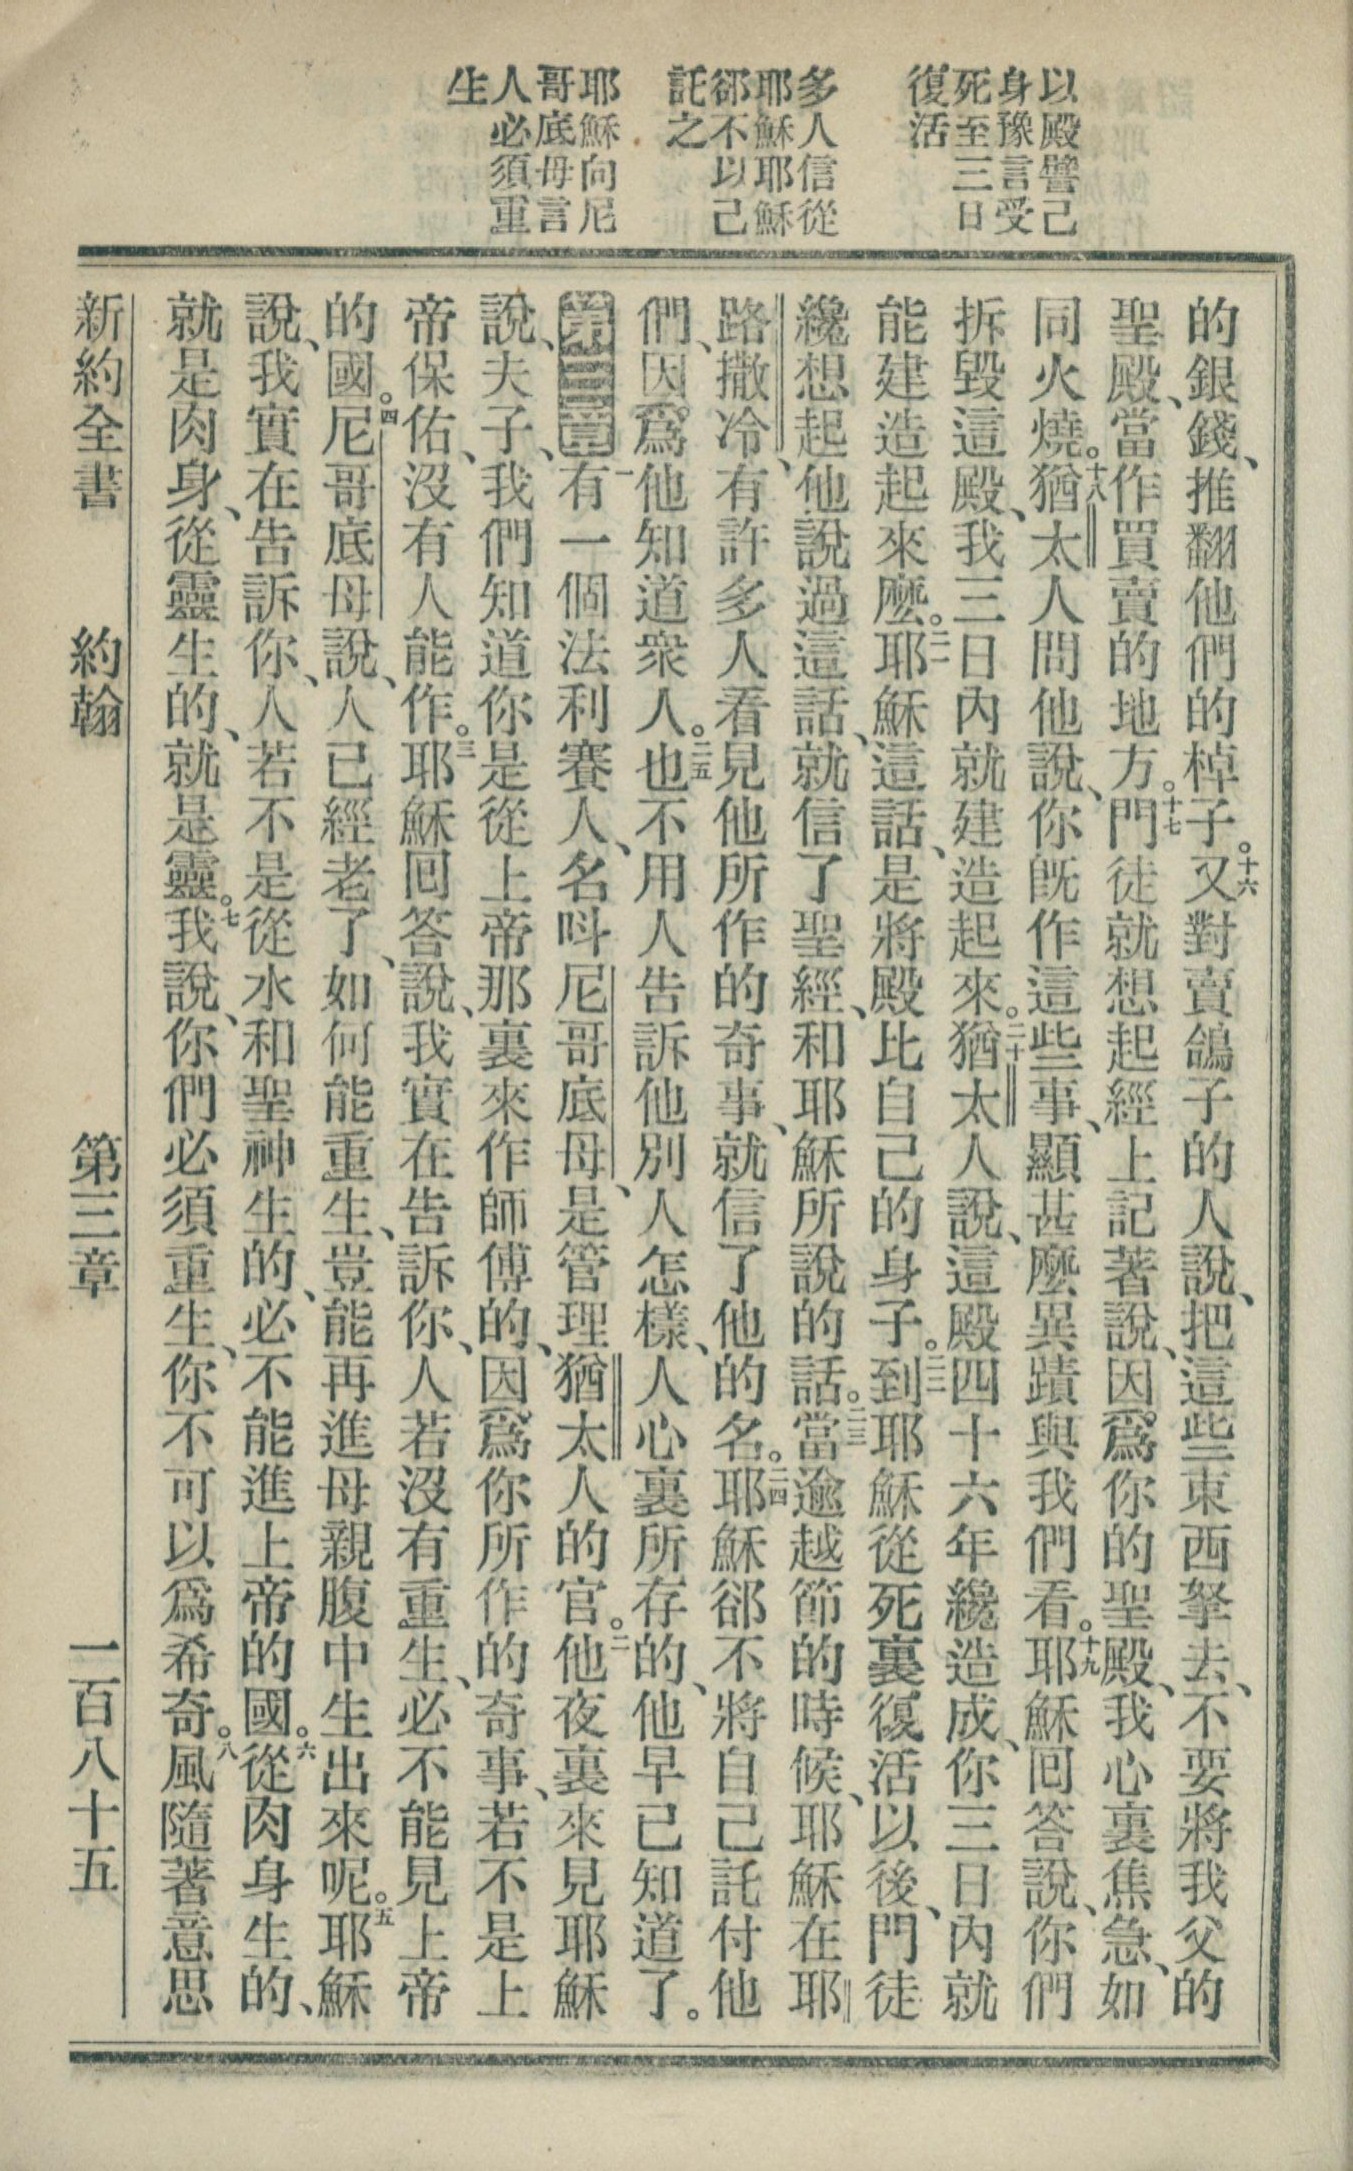 以殿譬己
身豫言受
死至三日
復活
多人信從
耶穌耶穌
郤不以己
託之
耶穌向尼
哥底母言
人必須重
生
的銀錢、推翻他們的棹子。十六又對賣鴿子的人說、把這些東西拏去、不要將我父的
聖殿、當作買賣的地方。十七門徒就想起經上記著說、因爲你的聖殿、我心裏焦急、如
同火燒。十八猶太人問他說、你旣作這些事、顯甚麽異蹟與我們看。十九耶穌回答說、你們
拆毀這殿、我三日內就建造起來。二十猶太人說、這殿四十六年纔造成、你三日內就
能建造起來麽。二一耶穌這話、是將殿比自己的身子。二二到耶穌從死裏復活以後、門徒
纔想起他說過這話、就信了聖經、和耶穌所說的話。二三當逾越節的時候、耶穌在耶
路撒冷、有許多人看見他所作的奇事、就信了他的名。二四耶穌郤不將自己託付他
們、因爲他知道衆人。二五也不用人告訴他別人怎樣、人心裏所存的、他早已知道了。
第三章一有一個法利賽人、名呌尼哥底母、是管理猶太人的官。二他夜裏來見耶穌
說、夫子、我們知道你是從上帝那裏來作師傅的、因爲你所作的奇事、若不是上
帝保佑、沒有人能作。三耶穌回答說、我實在告訴你、人若沒有重生、必不能見上帝
的國。四尼哥底母說、人已經老了、如何能重生、豈能再進母親腹中生出來呢。五耶穌
說、我實在告訴你、人若不是從水和聖神生的、必不能進上帝的國。六從肉身生的、
就是肉身、從靈生的、就是靈。七我說、你們必須重生、你不可以爲希奇。八風隨著意思
新約全書 約翰 第三章 一百八十五